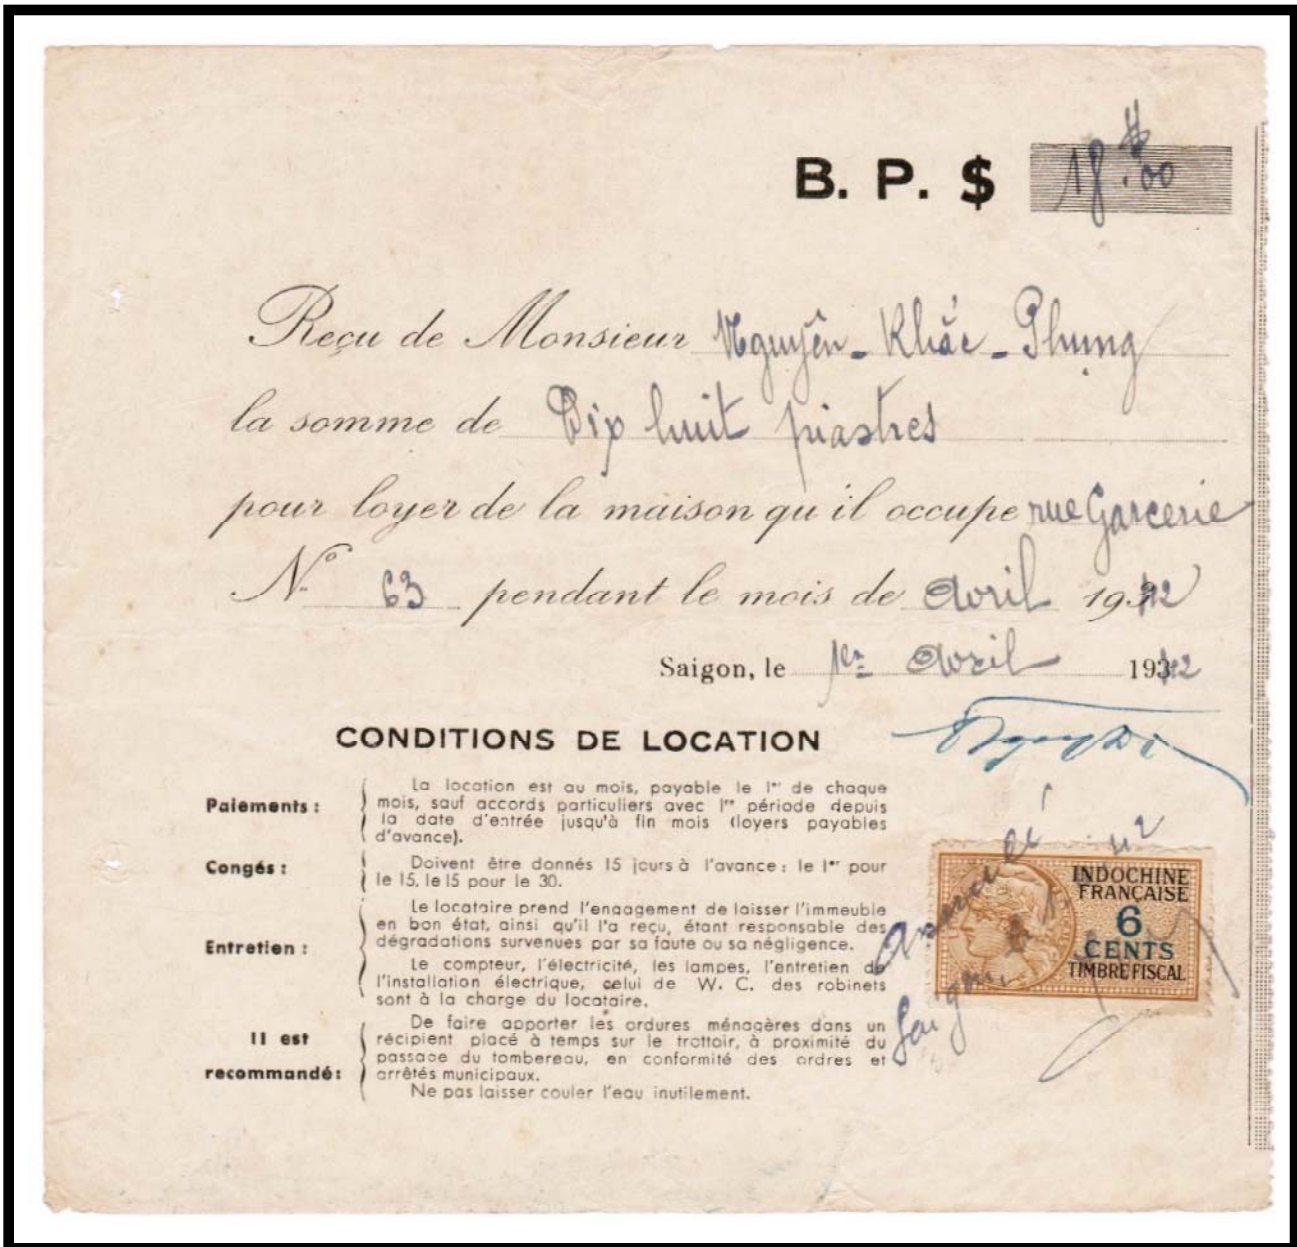 B. P. $ 18$.00
Reçu de Monsieur Nguyễn-Khắc-Phụng
la somme de Dix huit piastres
pour loyer de la maison qu'il occupe rue Garcerie
N° 63 pendant le mois de Avril 1942
Saigon, le 1er Avril 1942
CONDITIONS DE LOCATION
Paiements :
La location est au mois, payable le 1er de chaque
mois, sauf accords particuliers avec 1re période depuis
la date d'entrée jusqu'à fin mois (loyers payables
d'avance).
Congés :
Doivent être donnés 15 jours à l'avance : le 1er pour
le 15, le 15 pour le 30.
Entretien :
Le locataire prend l'engagement de laisser l'immeuble
en bon état, ainsi qu'il l'a reçu, étant responsable des
dégradations survenues par sa faute ou sa négligence.
Le compteur, l'électricité, les lampes, l'entretien de
l'installation électrique, celui de W. C. des robinets
sont à la charge du locataire.
Il est
recommandé :
De faire apporter les ordures ménagères dans un
récipient placé à temps sur le trottoir, à proximité du
passage du tombereau, en conformité des ordres et
arrêtés municipaux.
Ne pas laisser couler l'eau inutilement.
INDOCHINE
FRANÇAISE
6
CENTS
TIMBRE FISCAL